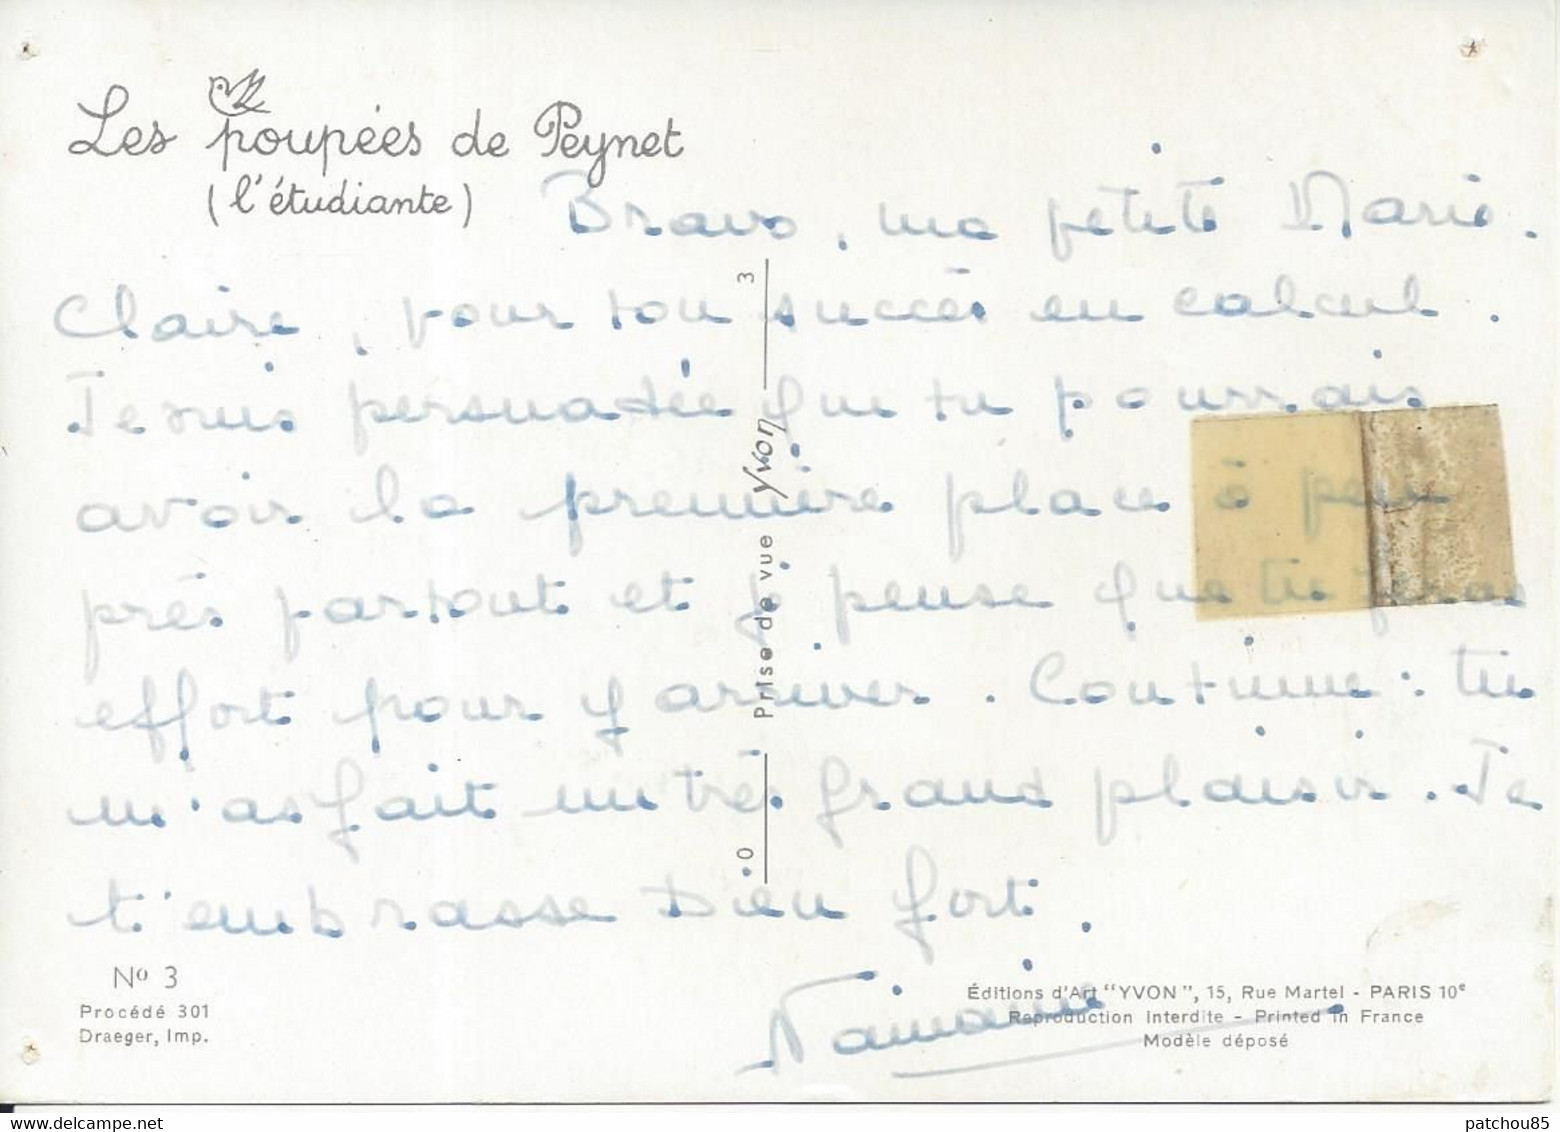 Les poupées de Peynet
(l'étudiante)
Bravo, ma petite Marie.
Claire, pour ton succès en calcul.
Je suis persuadée que tu pourrais
avoir la première place à peu
près partout et je pense que tu feras
effort pour y arriver. Continue : tu
m'as fait un très grand plaisir. Je
t'embrasse bien fort.
3
Prise de vue Yvon
0
Nº 3
Procédé 301
Draeger, Imp.
Éditions d'Art "YVON", 15, Rue Martel - PARIS 10e
Reproduction Interdite - Printed in France
Modèle déposé
patchou85